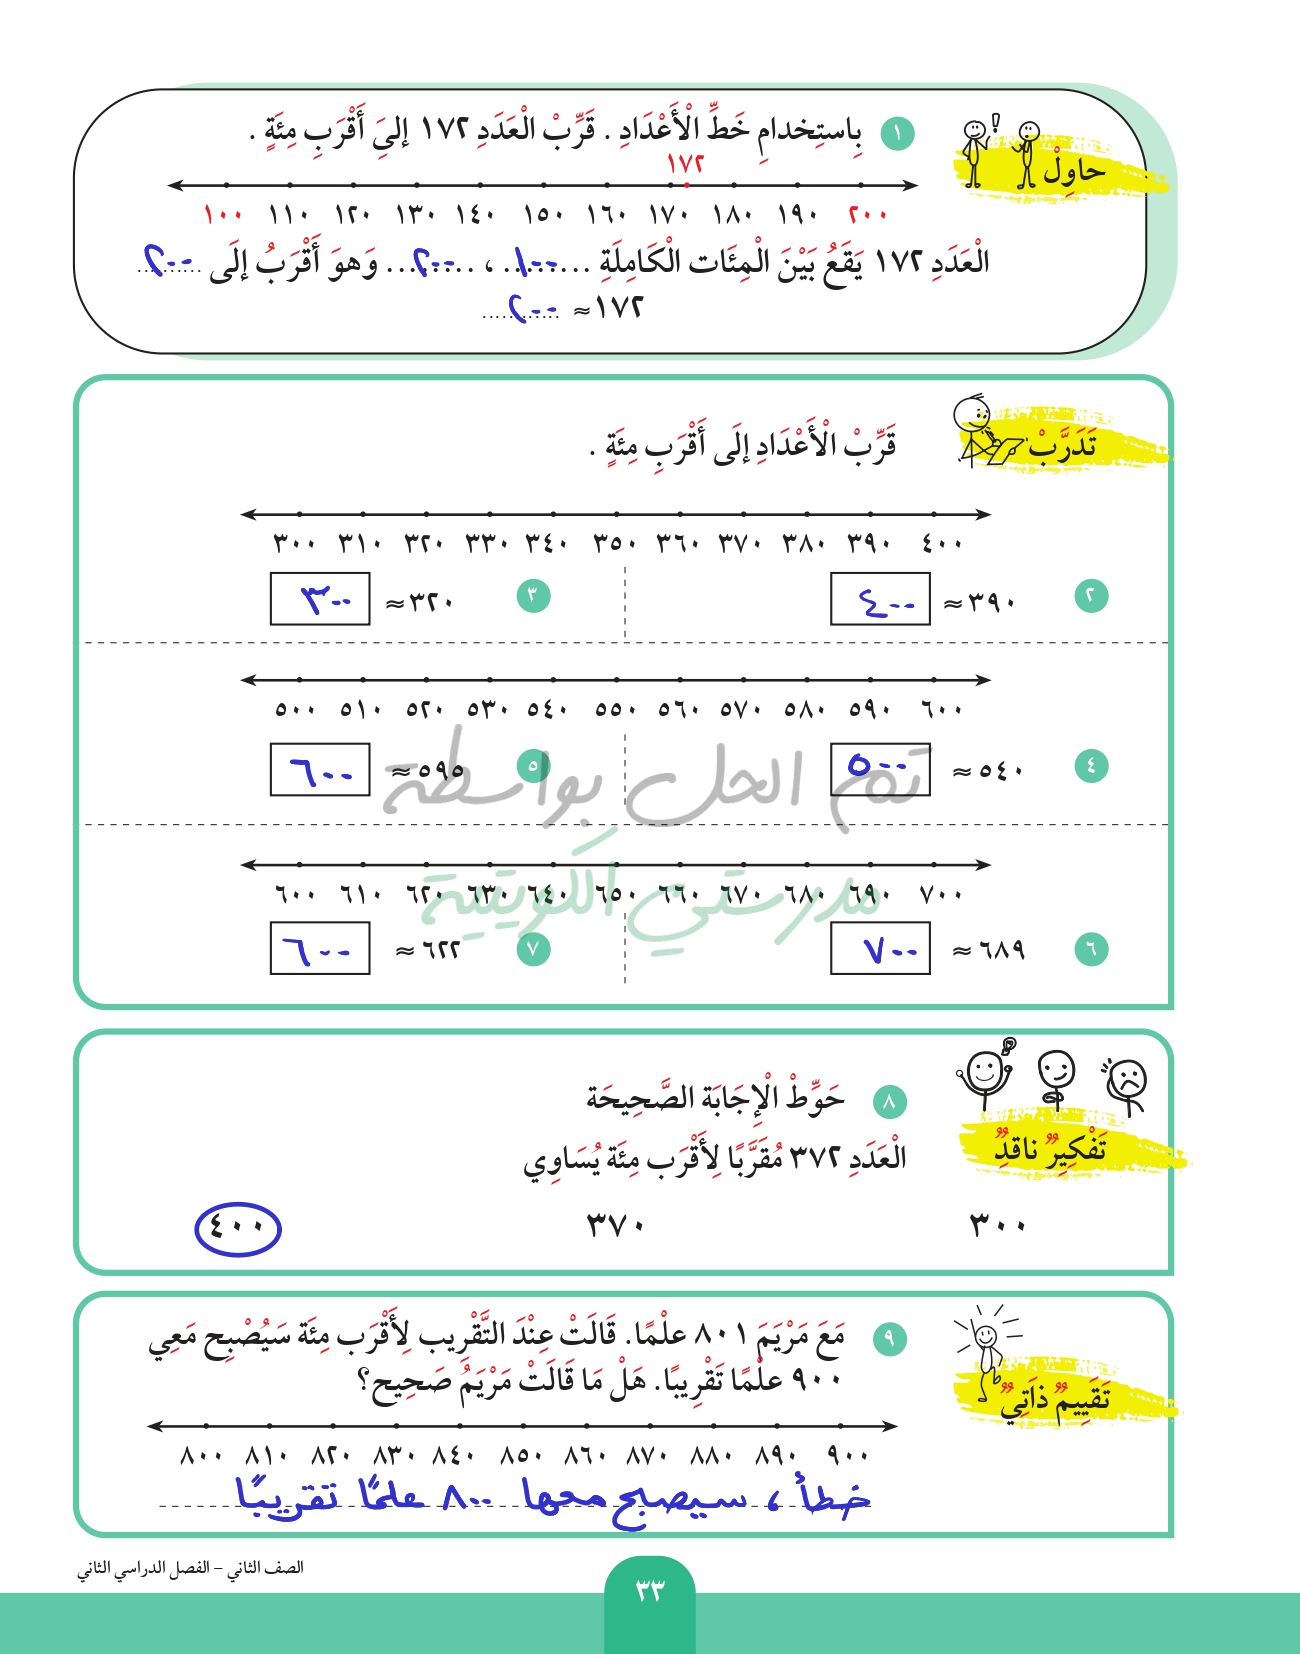 حاوِلْ
١ بِاستِخدامِ خَطِّ الْأَعْدَادِ . قَرِّبْ الْعَدَدِ ١٧٢ إلىَ أَقْرَبِ مِئَةٍ .
١٧٢
١٠٠ ١١٠ ١٢٠ ١٣٠ ١٤٠ ١٥٠ ١٦٠ ١٧٠ ١٨٠ ١٩٠ ٢٠٠
الْعَدَدِ ١٧٢ يَقَعُ بَيْنَ الْمِئَات الْكَامِلَةِ ١٠٠ ، ٢٠٠ وَهوَ أَقْرَبُ إلَى ٢٠٠
١٧٢ ≈ ٢٠٠
تَدَرَّبْ
قَرِّبْ الْأَعْدَادِ إلَى أَقْرَبِ مِئَةٍ .
٣٠٠ ٣١٠ ٣٢٠ ٣٣٠ ٣٤٠ ٣٥٠ ٣٦٠ ٣٧٠ ٣٨٠ ٣٩٠ ٤٠٠
٢ ٣٩٠ ≈ ٤٠٠
٣ ٣٢٠ ≈ ٣٠٠
٥٠٠ ٥١٠ ٥٢٠ ٥٣٠ ٥٤٠ ٥٥٠ ٥٦٠ ٥٧٠ ٥٨٠ ٥٩٠ ٦٠٠
٤ ٥٤٠ ≈ ٥٠٠
٥ ٥٩٥ ≈ ٦٠٠
تم الحل بواسطة
مدرستي الكويتية
٦٠٠ ٦١٠ ٦٢٠ ٦٣٠ ٦٤٠ ٦٥٠ ٦٦٠ ٦٧٠ ٦٨٠ ٦٩٠ ٧٠٠
٦ ٦٨٩ ≈ ٧٠٠
٧ ٦٢٢ ≈ ٦٠٠
تَفْكِيرٌ ناقدٌ
٨ حَوِّطْ الْإِجَابَة الصَّحِيحَة
الْعَدَدِ ٣٧٢ مُقَرَّبًا لِأَقْرَب مِئَة يُسَاوِي
٣٠٠ ٣٧٠ ٤٠٠
تَقَيِيمٌ ذَاتِيٌّ
٩ مَعَ مَرْيَمَ ٨٠١ علْمًا. قَالَتْ عِنْدَ التَّقْرِيب لِأَقْرَب مِئَة سَيُصْبِح مَعِي
٩٠٠ علْمًا تَقْرِيبًا. هَلْ مَا قَالَتْ مَرْيَمُ صَحِيح؟
٨٠٠ ٨١٠ ٨٢٠ ٨٣٠ ٨٤٠ ٨٥٠ ٨٦٠ ٨٧٠ ٨٨٠ ٨٩٠ ٩٠٠
خطأ ، سيصبح معها ٨٠٠ علمًا تقريبًا
الصف الثاني – الفصل الدراسي الثاني
٣٣